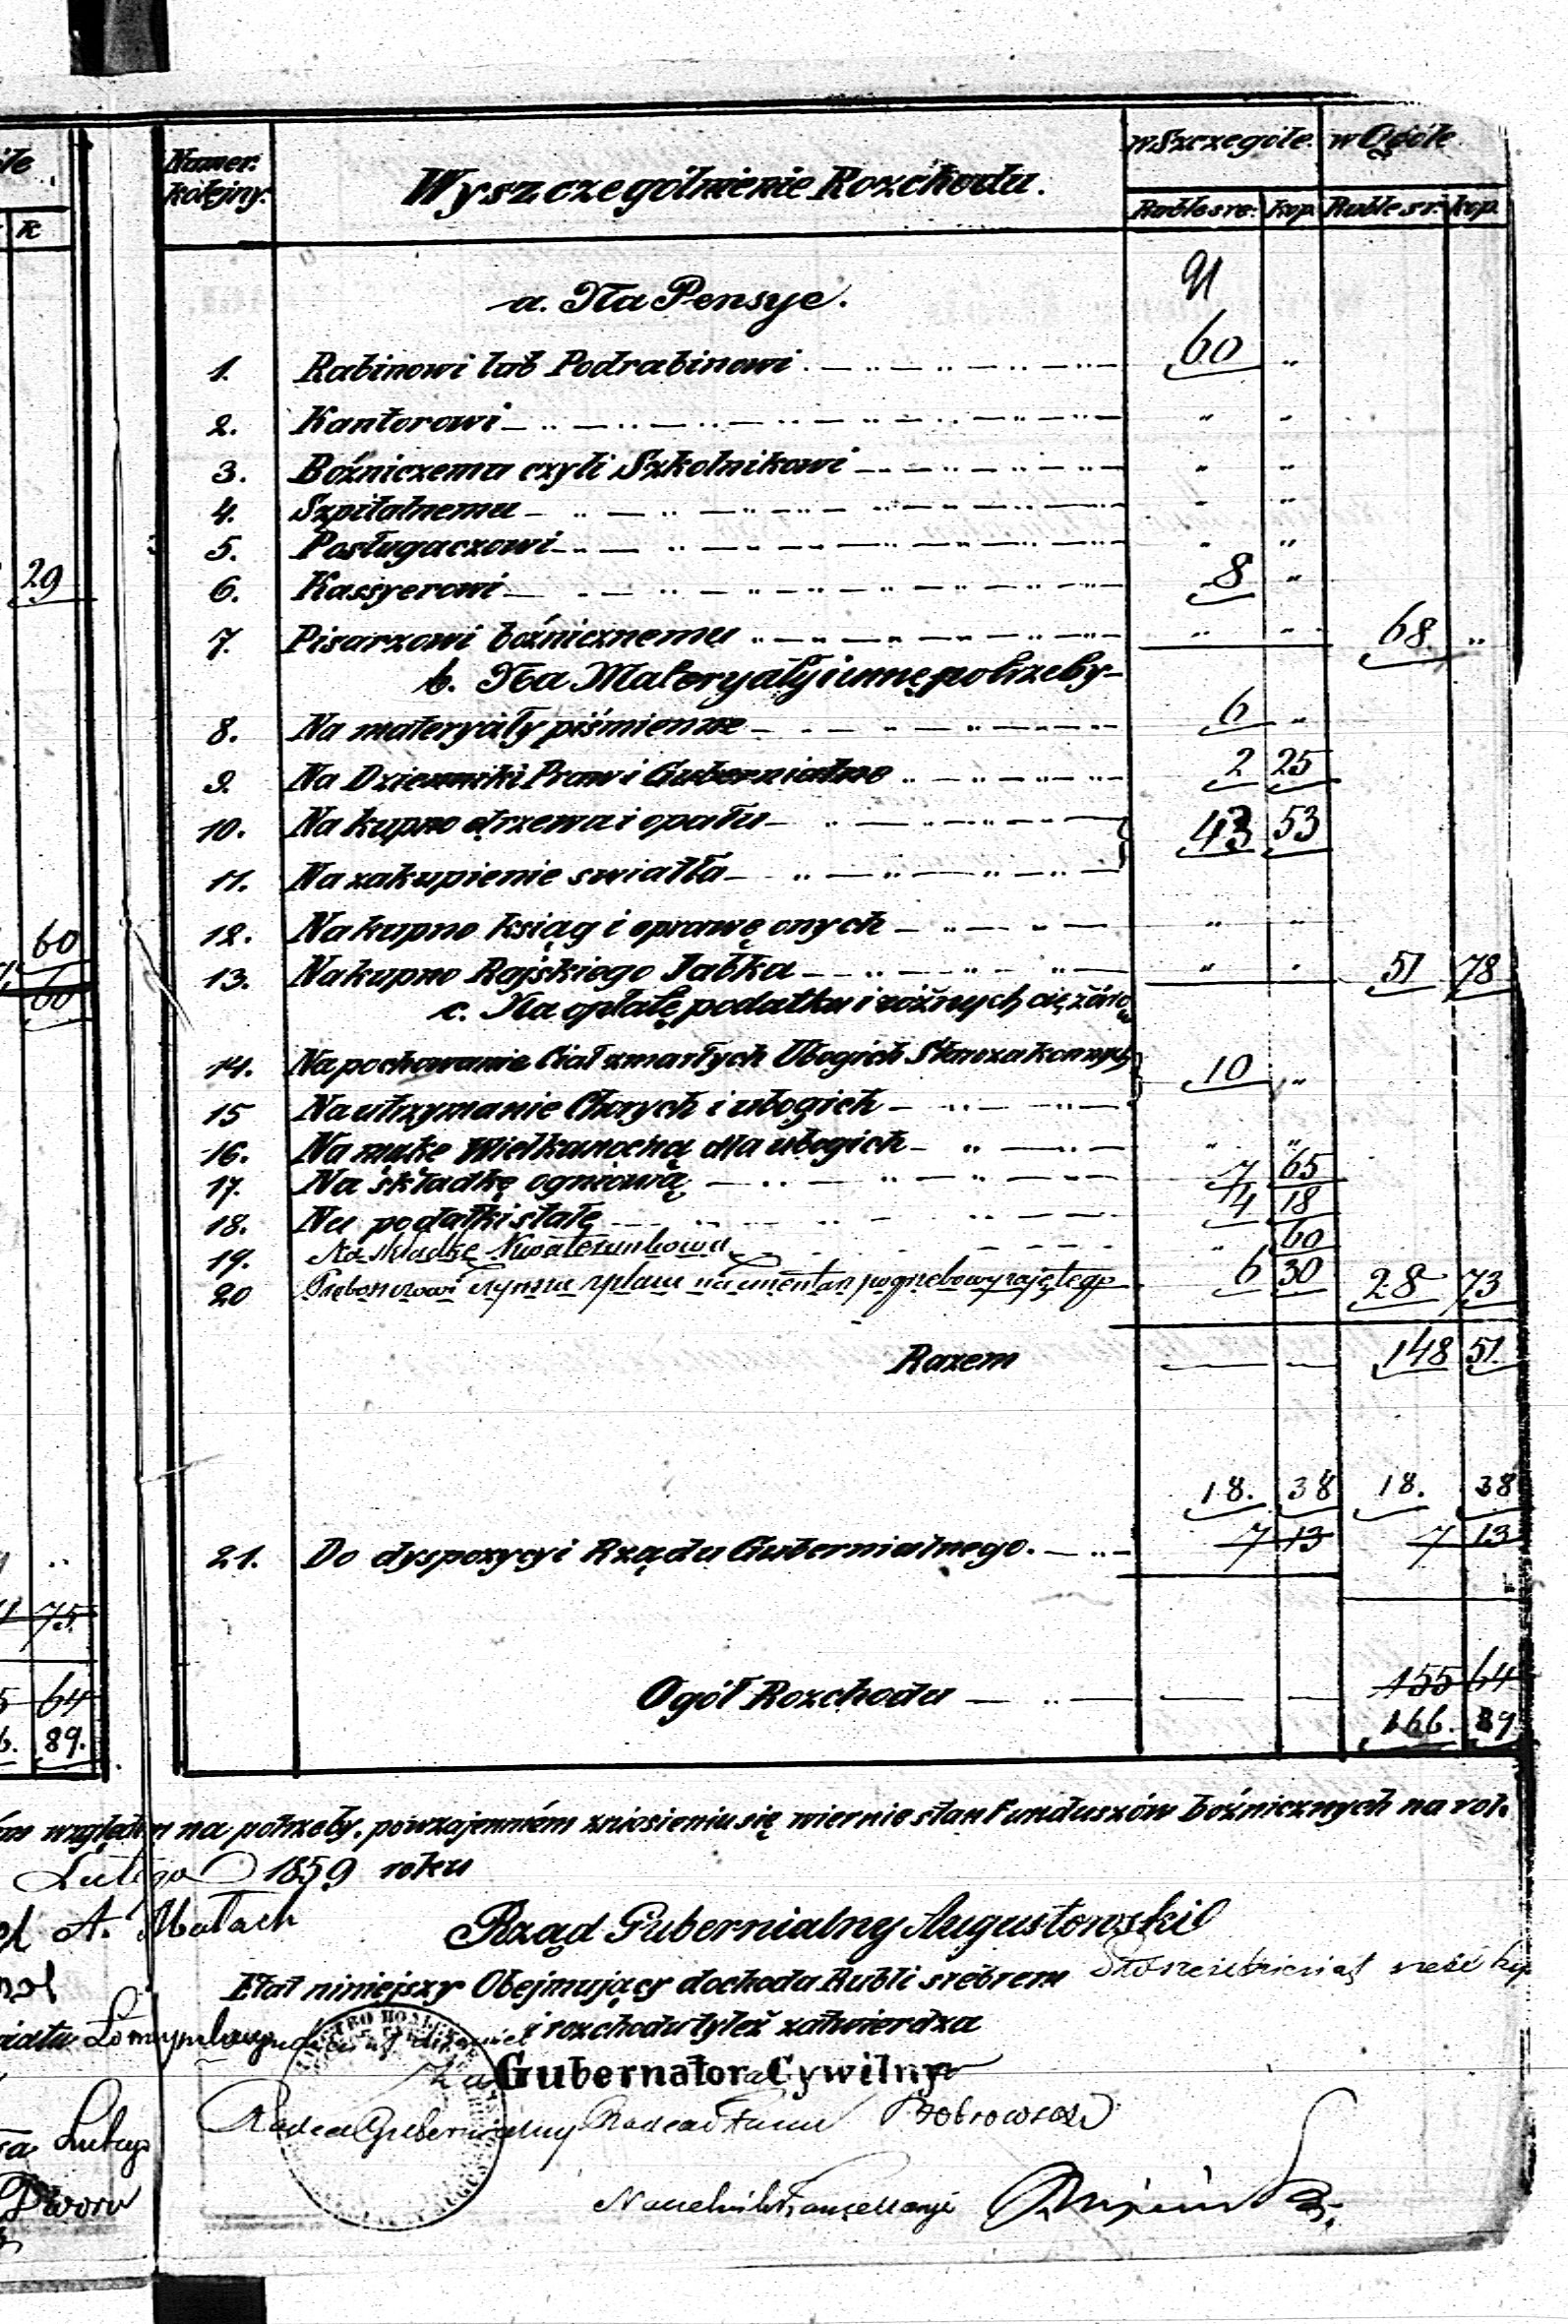 Numer kolejny. Wyszczególnienie Rozchodu. w Szczególe. w Ogóle
Ruble sre: kop. Ruble sr: kop.
K
a. Na Pensye. 91
1. Rabinowi lub Podrabinowi 60 "
2. Kantorowi " "
3. Boźniczemu czyli Szkolnikowi " "
4. Szpitalnemu " "
5. Posługaczowi " "
6. Kassyerowi 8 "
29
7. Pisarzowi bóźnicznemu " " 68. "
b. Na Materyały i inne potrzeby
8. Na materyały piśmienne 6 "
9. Na Dzienniki Praw i Gubernialne 2 25
10. Na kupno drzewa i opału 43 53
11. Na zakupienie swiatła
12. Na kupno ksiąg i oprawę onych " "
60
13. Na kupno Rajskiego Jabłka " " 51 78
60
c. Na opłatę podatku i różnych ciężarów
14. Na pochowanie Ciał zmarłych Ubogich Starozakonnych 10 "
15 Na utrzymanie Chorych i ubogich
16. Na mąkę Wielkanocną dla ubogich " "
17. Na składkę ogniową 7 65
18. Na podatki stałe 4 18
19. Na składkę Kwaterunkową " 60
20 czynszu placu na cmentarz pogrzebowy zajętego 6 30 28 73
Razem 148 51
18. 38 18. 38
21. Do dyspozycyi Rządu Gubernialnego. 7 13 7 13
75
Ogół Rozchodu 155 64
64
166. 89
89.
względem na potrzeby, po wzajemném zniosieniu się wiernie stan Funduszów bóźnicznych na rok
Lutego 1859 roku
A. Małach
Rząd Gubernialny Augustowski
Etat niniejszy Obejmujący dochodu Rubli srebrem
i rozchodu tyleż zatwierdza
Za Gubernatora Cywilnego
Radca Gubernialny Radca Stanu
Naczelnik Kancellaryi